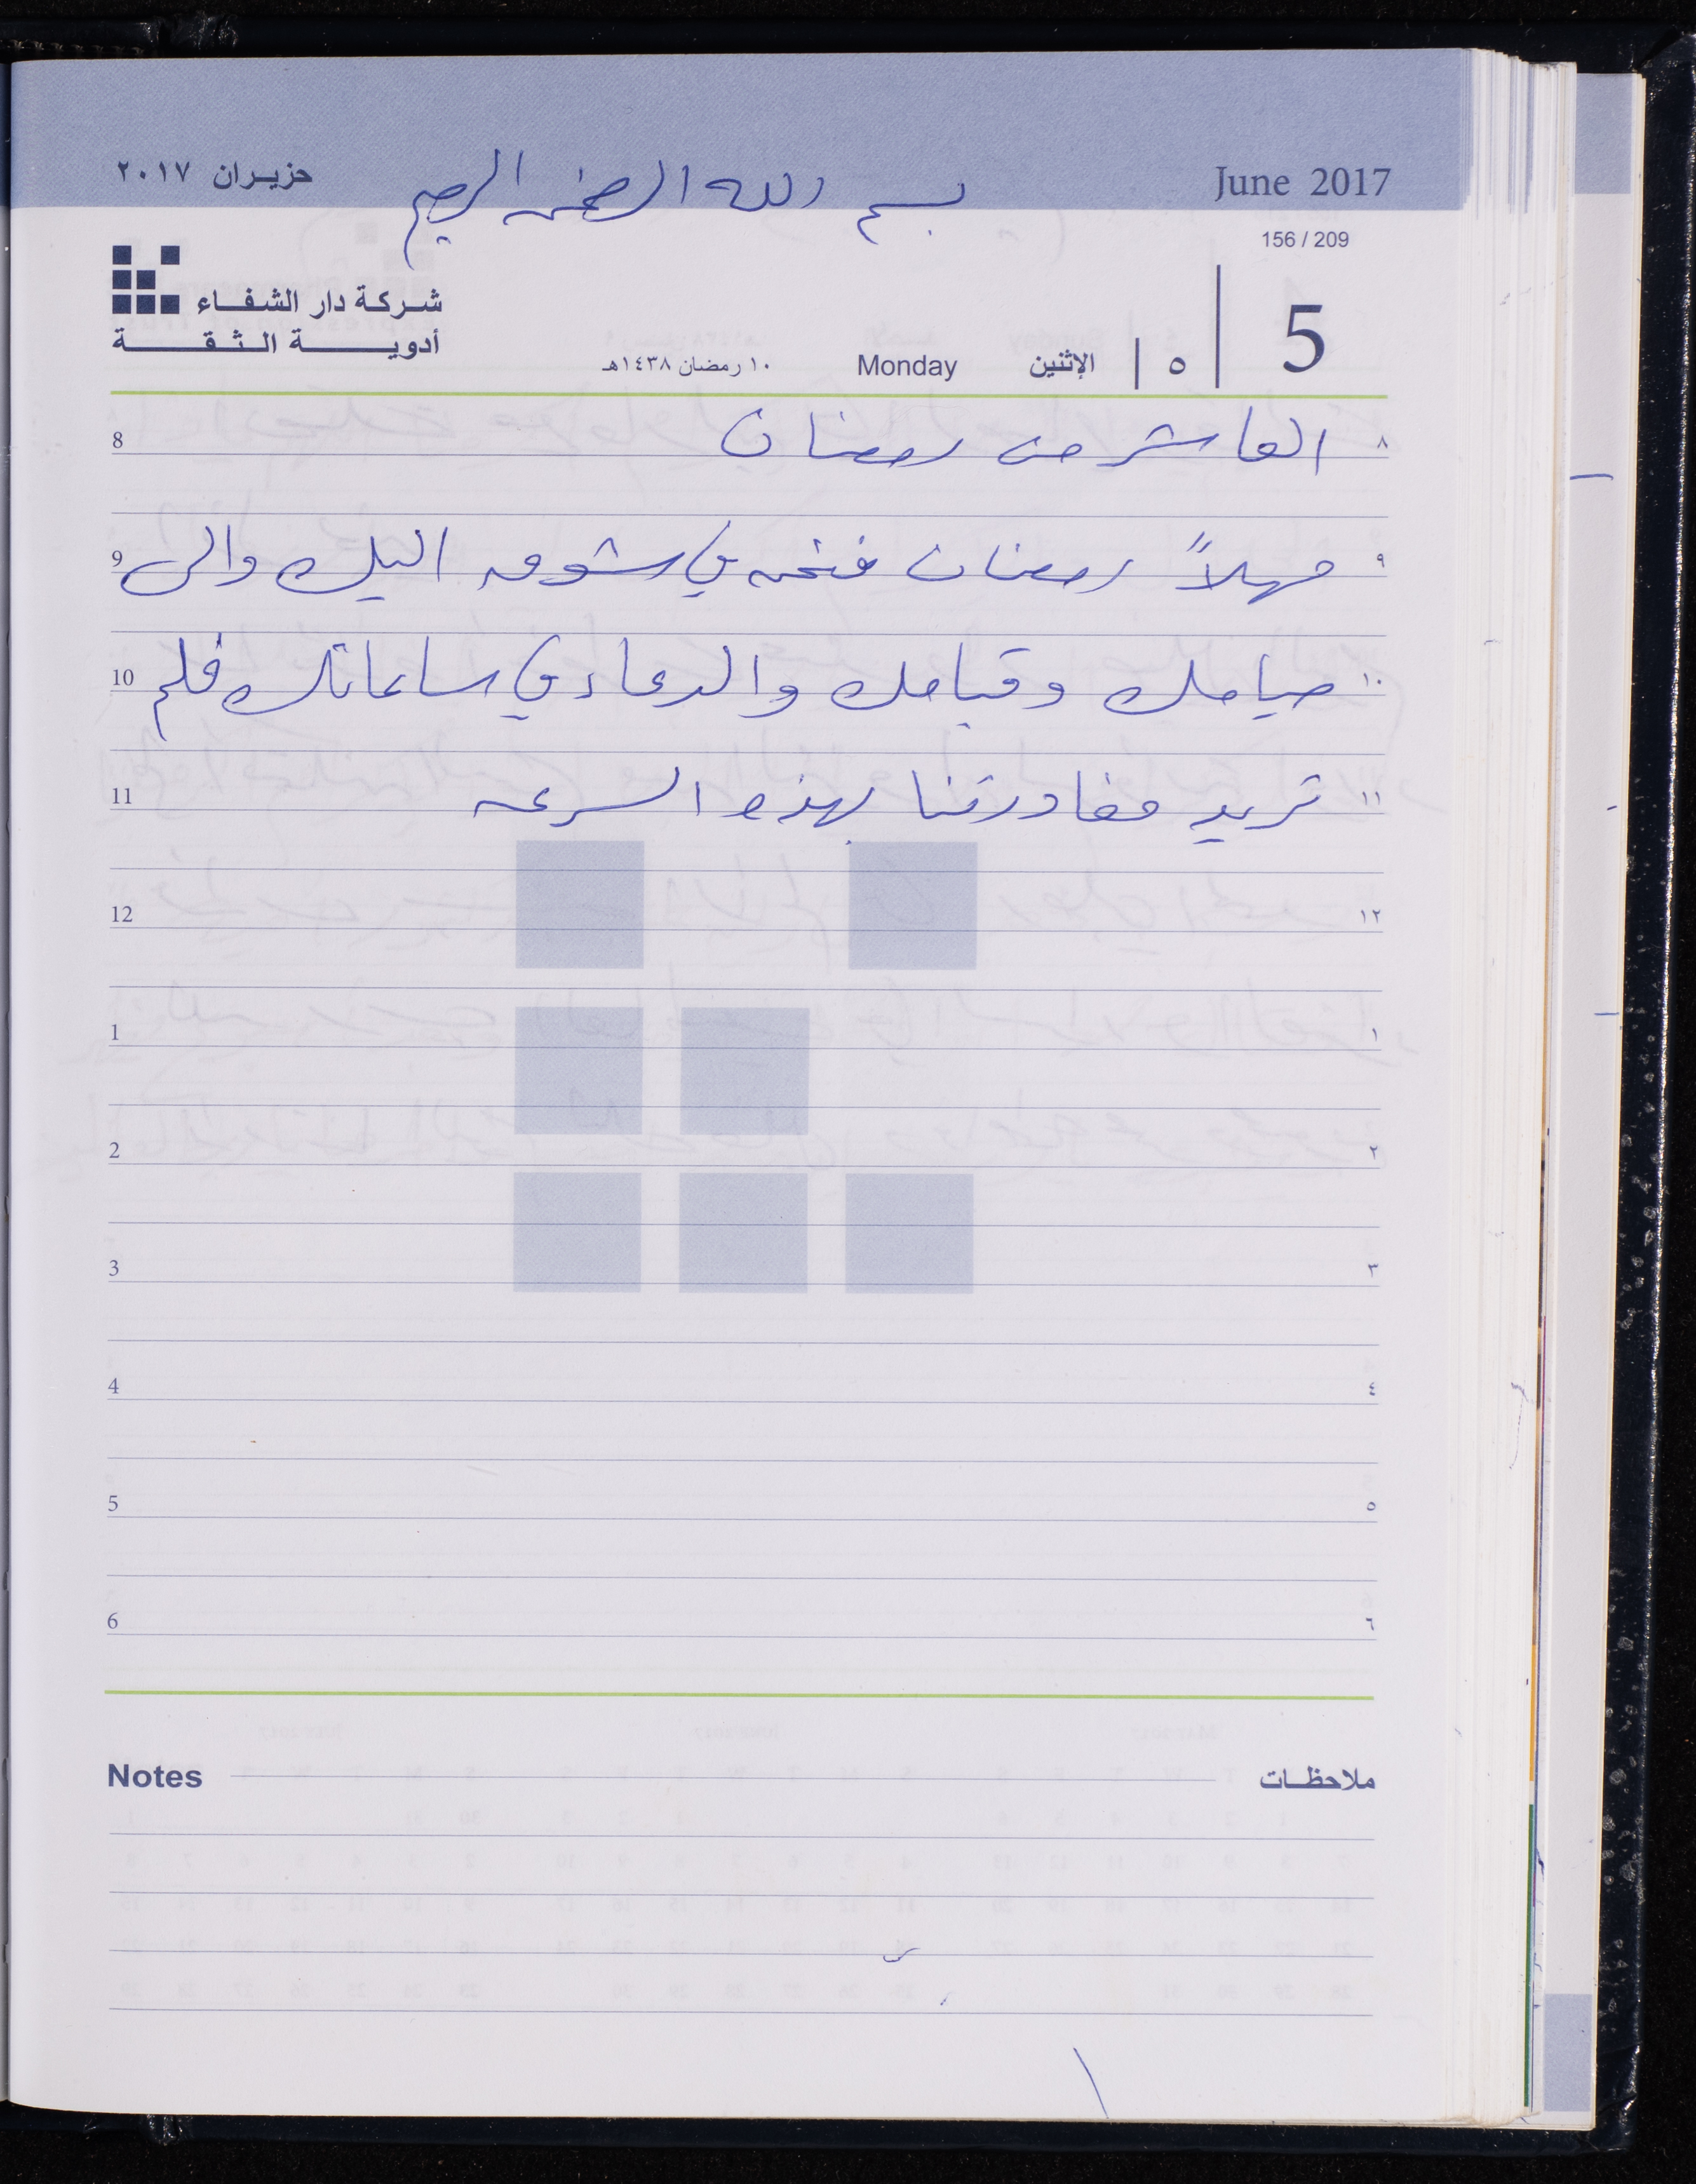 June 2017 بسم الله الرحمن الرحيم حزيران ٢٠١٧
156 / 209
5 ٥ الإثنين Monday ١٠ رمضان ١٤٣٨هـ
شركة دار الشفاء
أدوية الثقة
٨ العاشر من رمضان 8
٩ مهلاً رمضان فنحن في شوق اليك والى 9
١٠ صيامك وقيامك والدعاء في ساعاتك فلم 10
١١ تريد مغادرتنا بهذه السرعه 11
١٢ 12
١ 1
٢ 2
٣ 3
٤ 4
٥ 5
٦ 6
ملاحظات Notes